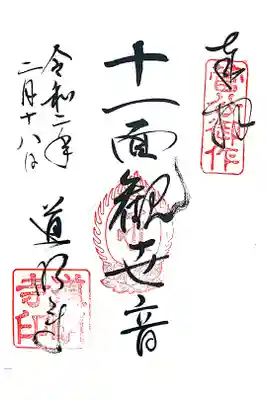 奉拝
菅公御作
十一面觀世音
令和二年
二月十八日
道明寺
道明
寺印